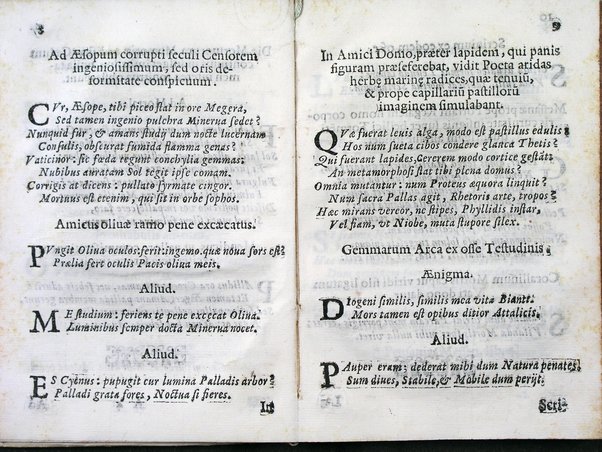 8
Ad Æsopum corrupti seculi Censorem
ingeniosissimum, sed oris de-
formitate conspicuum.
CVr, Æsope, tibi piceo stat in ore Megera,
Sed tamen ingenio pulchra Minerva sedet?
Nunquid fur, & amans studij dum nocte lucernam
Consulis, obscurat fumida flamma genas?
Vaticinor: sic fæda tegunt conchylia gemmas:
Nubibus auratam Sol tegit ipse comam.
Corrigis at dicens: pullato syrmate cingor.
Morinus est etenim, qui sit in orbe sophos.
Amicus oliuæ ramo pene excæcatus.
PVngit Oliua oculos: ferit: ingemo. quæ noua sors est?
Prælia fert oculis Pacis oliua meis.
Aliud.
ME studium: feriens te pene excæcat Oliua.
Luminibus semper docta Minerua nocet.
Aliud.
ES Cycnus: pupugit cur lumina Palladis arbor?
Palladi grata fores, Noctua si fieres.
In
9
In Amici Domo, præter lapidem, qui panis
figuram præseferebat, vidit Poeta aridas
herbę marinę radices, quæ tenuiũ,
& prope capillariũ pastilloru
imaginem simulabant.
QVæ fuerat leuis alga, modo est pastillus edulis?
Hos num sueta cibos condere glauca Thetis?
Qui fuerant lapides, Cererem modo cortice gestãt:
An metamorphosi stat tibi plena domus?
Omnia mutantur: num Proteus æquora linquit?
Num sacra Pallas agit, Rhetoris arte, tropos?
Hæc mirans vereor, ne stipes, Phyllidis instar,
Vel fiam, vt Niobe, muta stupore silex.
Gemmarum Arca ex osse Testudinis.
Ænigma.
DIogeni similis, similis mea vita Bianti.
Mors tamen est opibus ditior Attalicis.
Aliud.
PAuper eram; dederat mibi dum Natura penates.
Sum diues, Stabile, & Mobile dum perijt.
Scri-